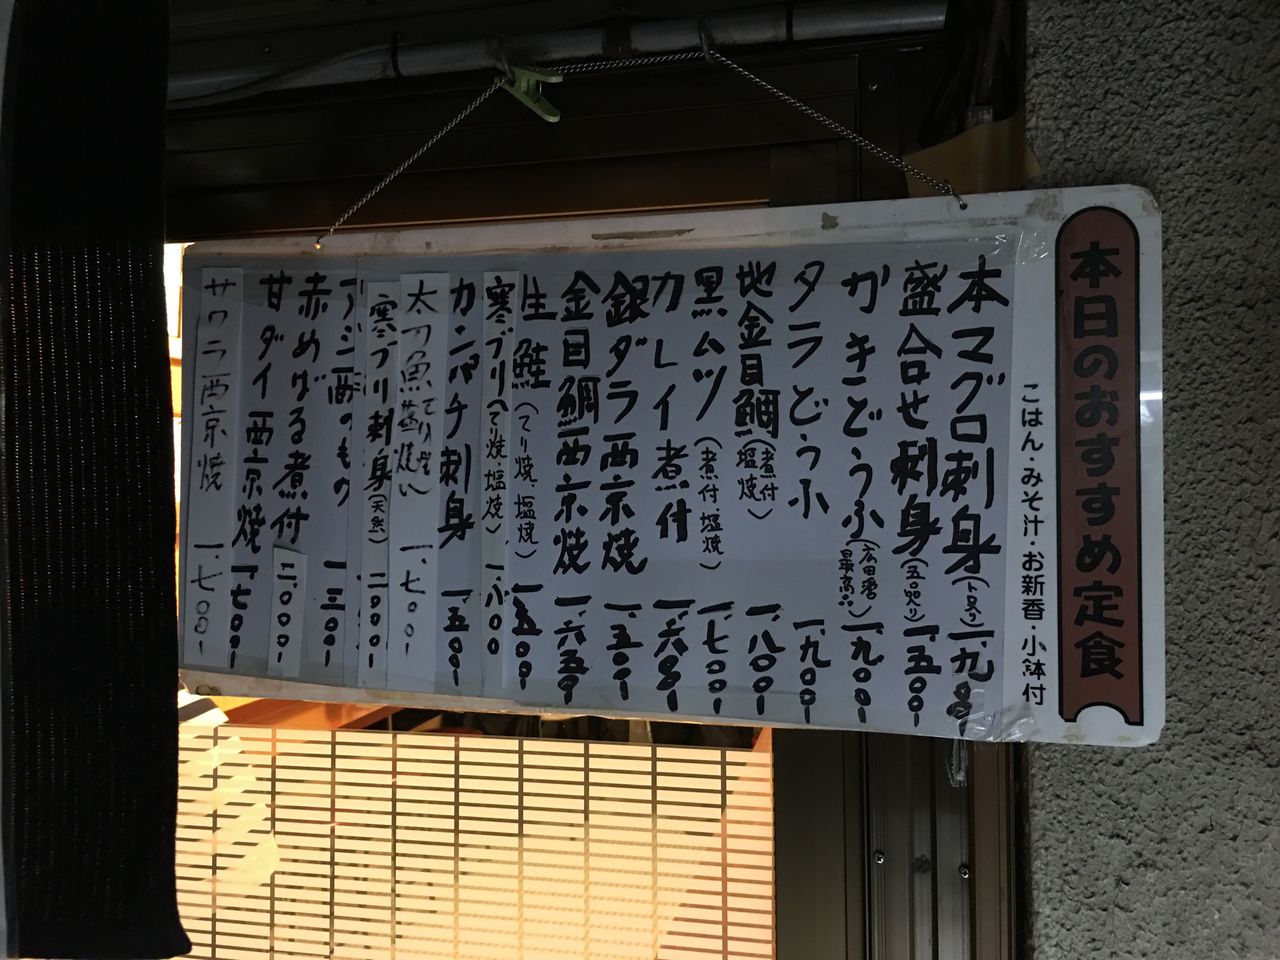 本日のおすすめ定食
ごはん・みそ汁・お新香・小鉢付
本マグロ刺身(トロ入り) 一、九〇〇-
盛合せ刺身(五品入り) 一、五〇〇-
かきどうふ(広田湾最高) 一、九〇〇
タラどうふ 一、九〇〇-
地金目鯛(煮付塩焼) 一、八〇〇-
黒ムツ(煮付・塩焼) 一、七〇〇-
カレイ煮付 一、六〇〇-
銀ダラ西京焼 一、五〇〇-
金目鯛西京焼 一、六五〇-
生鮭(てり焼、塩焼) 一、五〇〇-
寒ブリ(てり焼・塩焼) 一、八〇〇
カンパチ刺身 一、五〇〇-
太刀魚 一、七〇〇-
寒ブリ刺身(天然) 二、〇〇〇-
一、三〇〇-
赤めばる煮付 二、〇〇〇-
甘ダイ西京焼 一、七〇〇-
サワラ西京焼 一、七〇〇-